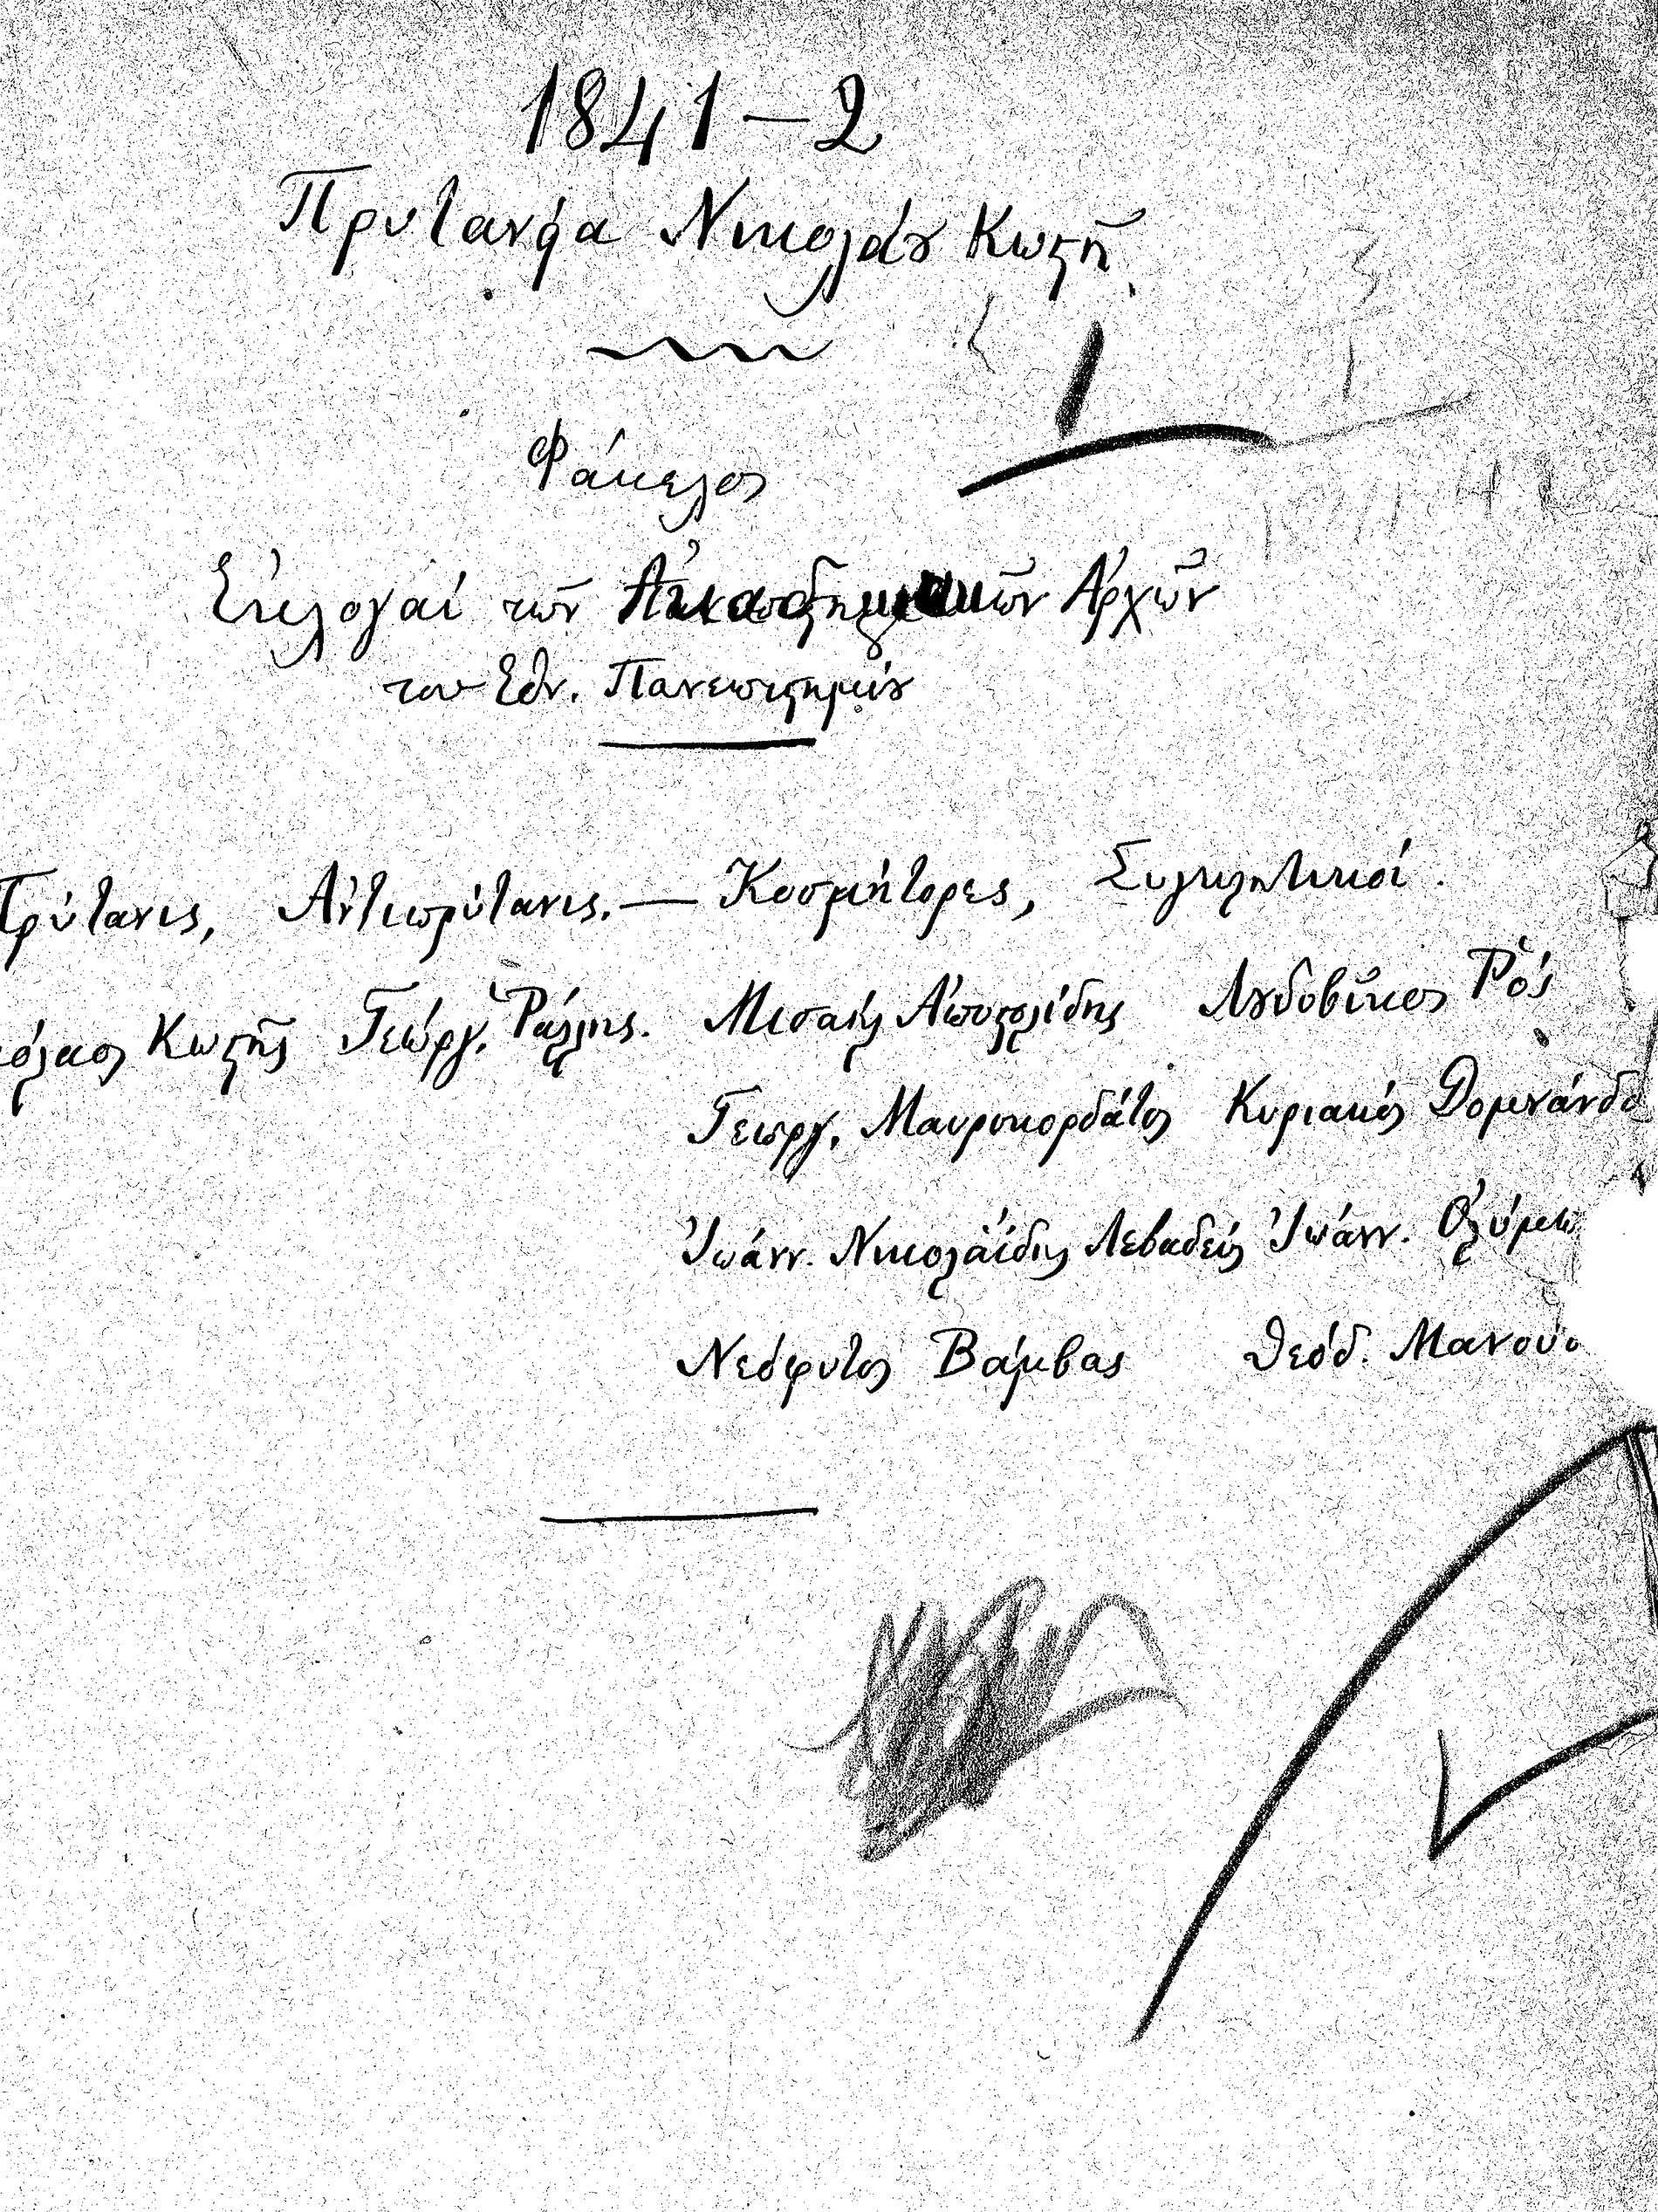 1841-2
Πρυτανεία Νικολάου Κωστῆ
Φάκελος
Ἐκλογαί των Ἀκαδημαϊκῶν Ἀρχῶν
του Ἐθν. Πανεπιστημίου
Πρύτανις, Ἀντιπρύτανις.— Κοσμήτορες, Συγκλητικοί.
κόλαος Κωστῆς Γεώργ. Ῥάλλης. Μισαήλ Ἀποστολίδης Λουδοβῖκος Ῥός
Γεωργ. Μαυροκορδάτος Κυριακός Δομνάνδο
Ἰωάνν. Νικολαΐδης Λεβαδεύς Ἰωάνν. Ὀλύμπι
Νεόφυτος Βάμβας Θεόδ. Μανούσ